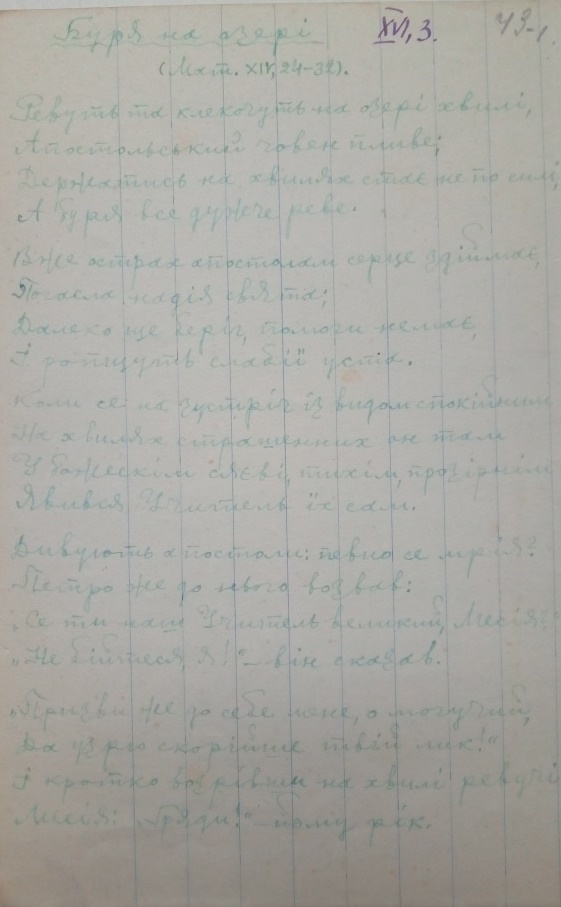 Буря на озері XVI, 3. 43-1.
(Мат. XIV, 24-32).
Ревуть та клекочуть на озері хвилі,
Апостольський човен пливе;
Держатись на хвилях стає не по силі,
А буря все дужче реве.
Вже острах апостолам серце здіймає,
Погасла надія свята;
Далеко ще беріг, помочи немає,
І ропщуть слабії уста.
Коли се на зустріч із видом спокійним
На хвилях страшенних он там
У божескім сяєві, тихім, прозірнім
Явився Учитель їх сам.
Дивують апостоли: певно се мрія?
Петро же до нього возвав:
„Се ти наш Учитель великий, Месія?"
„Не бійтеся, я!" – він сказав.
„Призви же до себе мене, о могучий,
Да узрю скорійше твій лик!"
І кротко возрівши на хвилі ревучі
Месія: „Гряди!" – йому рік.